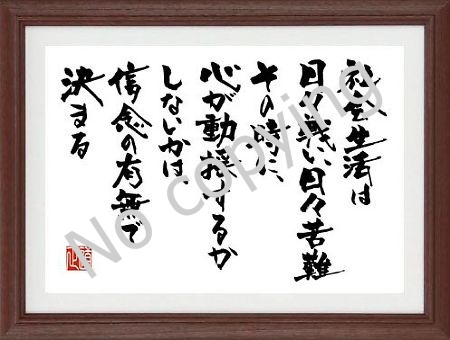 社会生活は
日々戦い日々苦難
その時に、
心が動揺するか
しないかは、
信念の有無で
決まる
No copying